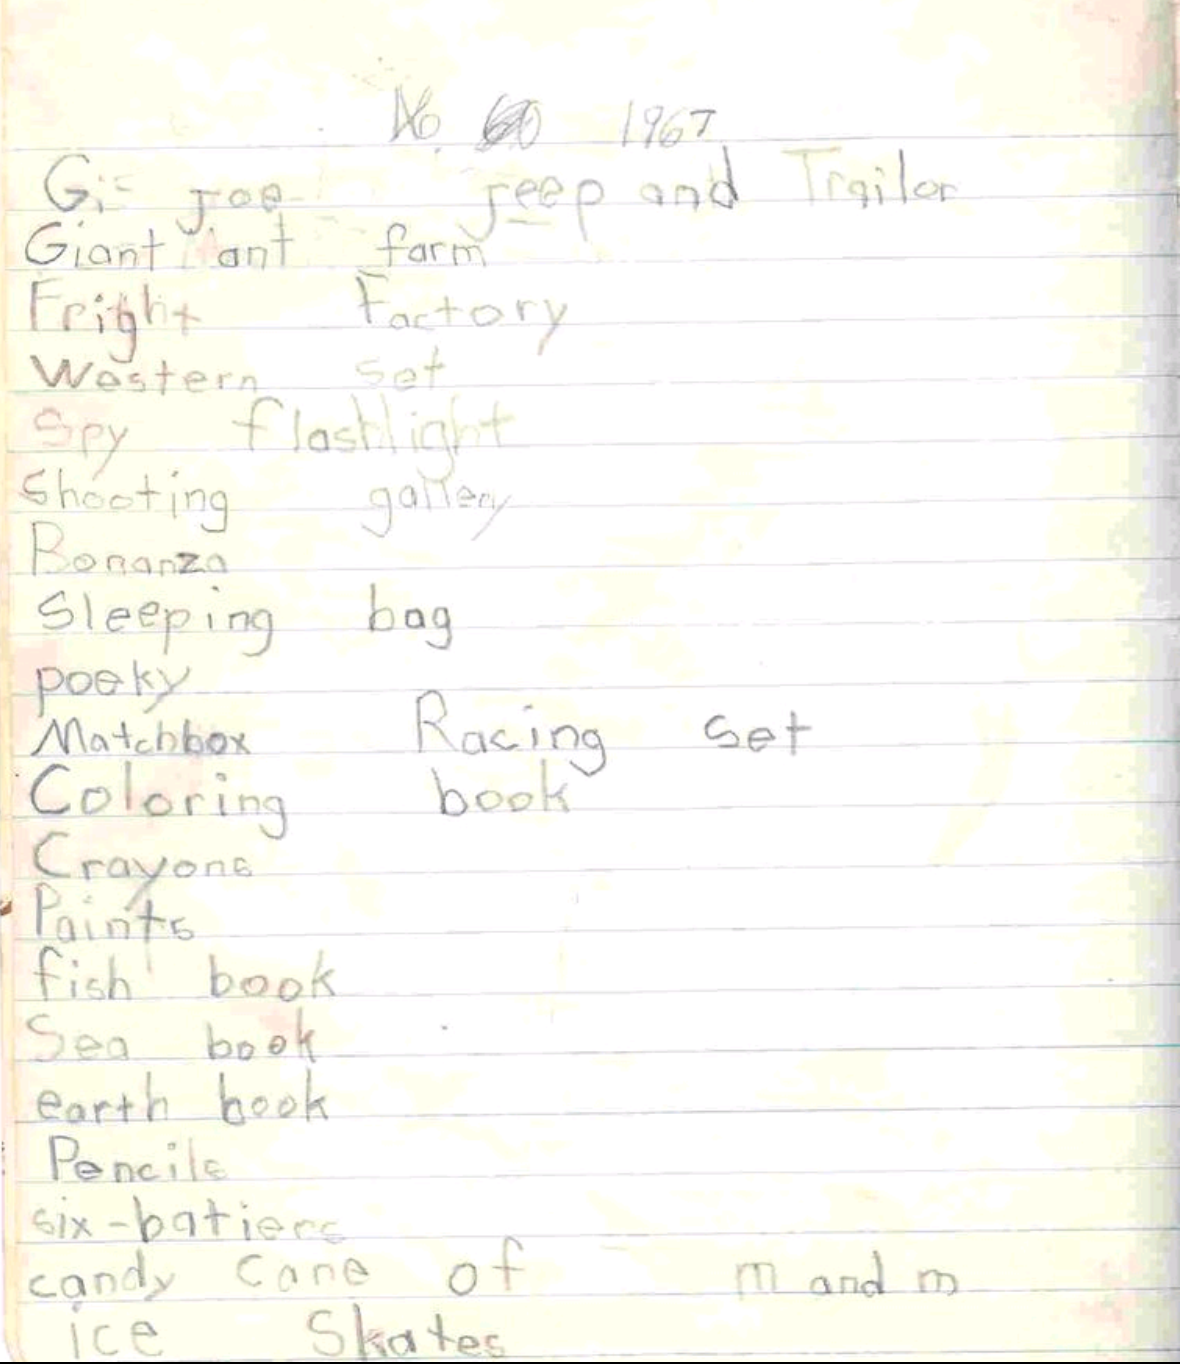 No. 60 1967
G.I. Joe Jeep and Trailor
Giant ant farm
Fright Factory
Western Set
Spy flashlight
Shooting gallery
Bonanza
Sleeping bag
pocky
Matchbox Racing Set
Coloring book
Crayons
Paints
fish book
Sea book
earth book
Pencils
six-batiers
candy cane of m and m
ice Skates